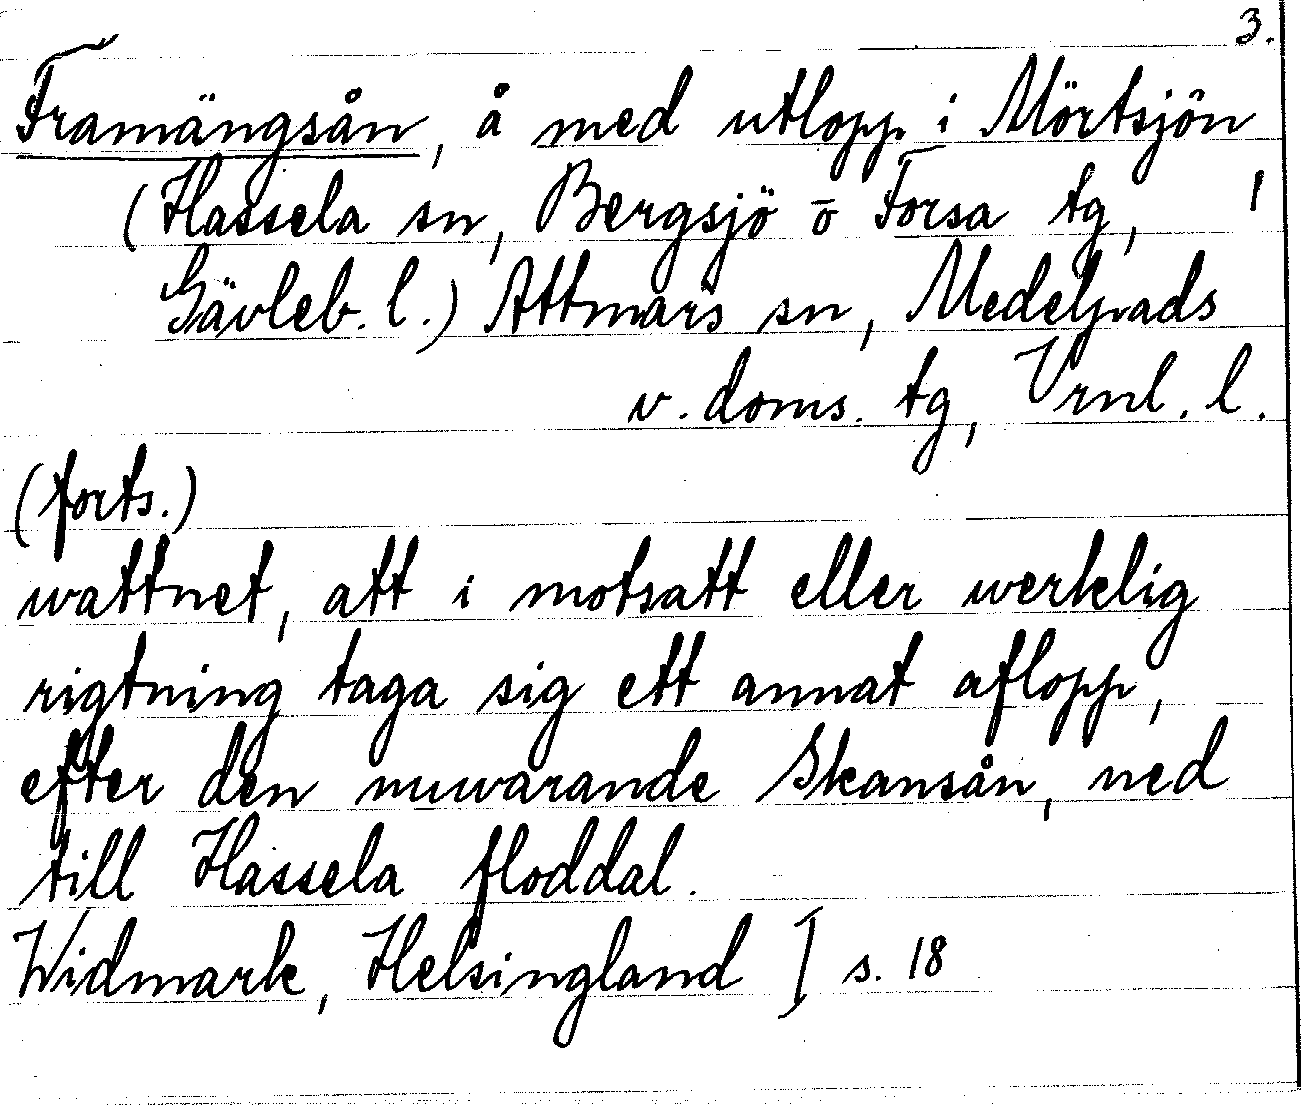 3.
Framängsån, å med utlopp i Mörtsjön
(Hassela sn, Bergsjö o Forsa tg, 1
Gävleb. l.) Attmars sn, Medelpads
v. doms. tg, Vrnl. l.
(forts.)
wattnet, att i motsatt eller werklig
rigtning taga sig ett annat aflopp,
efter den nuwarande Skansån, ned
till Hassela floddal.
Widmark, Helsingland I s. 18